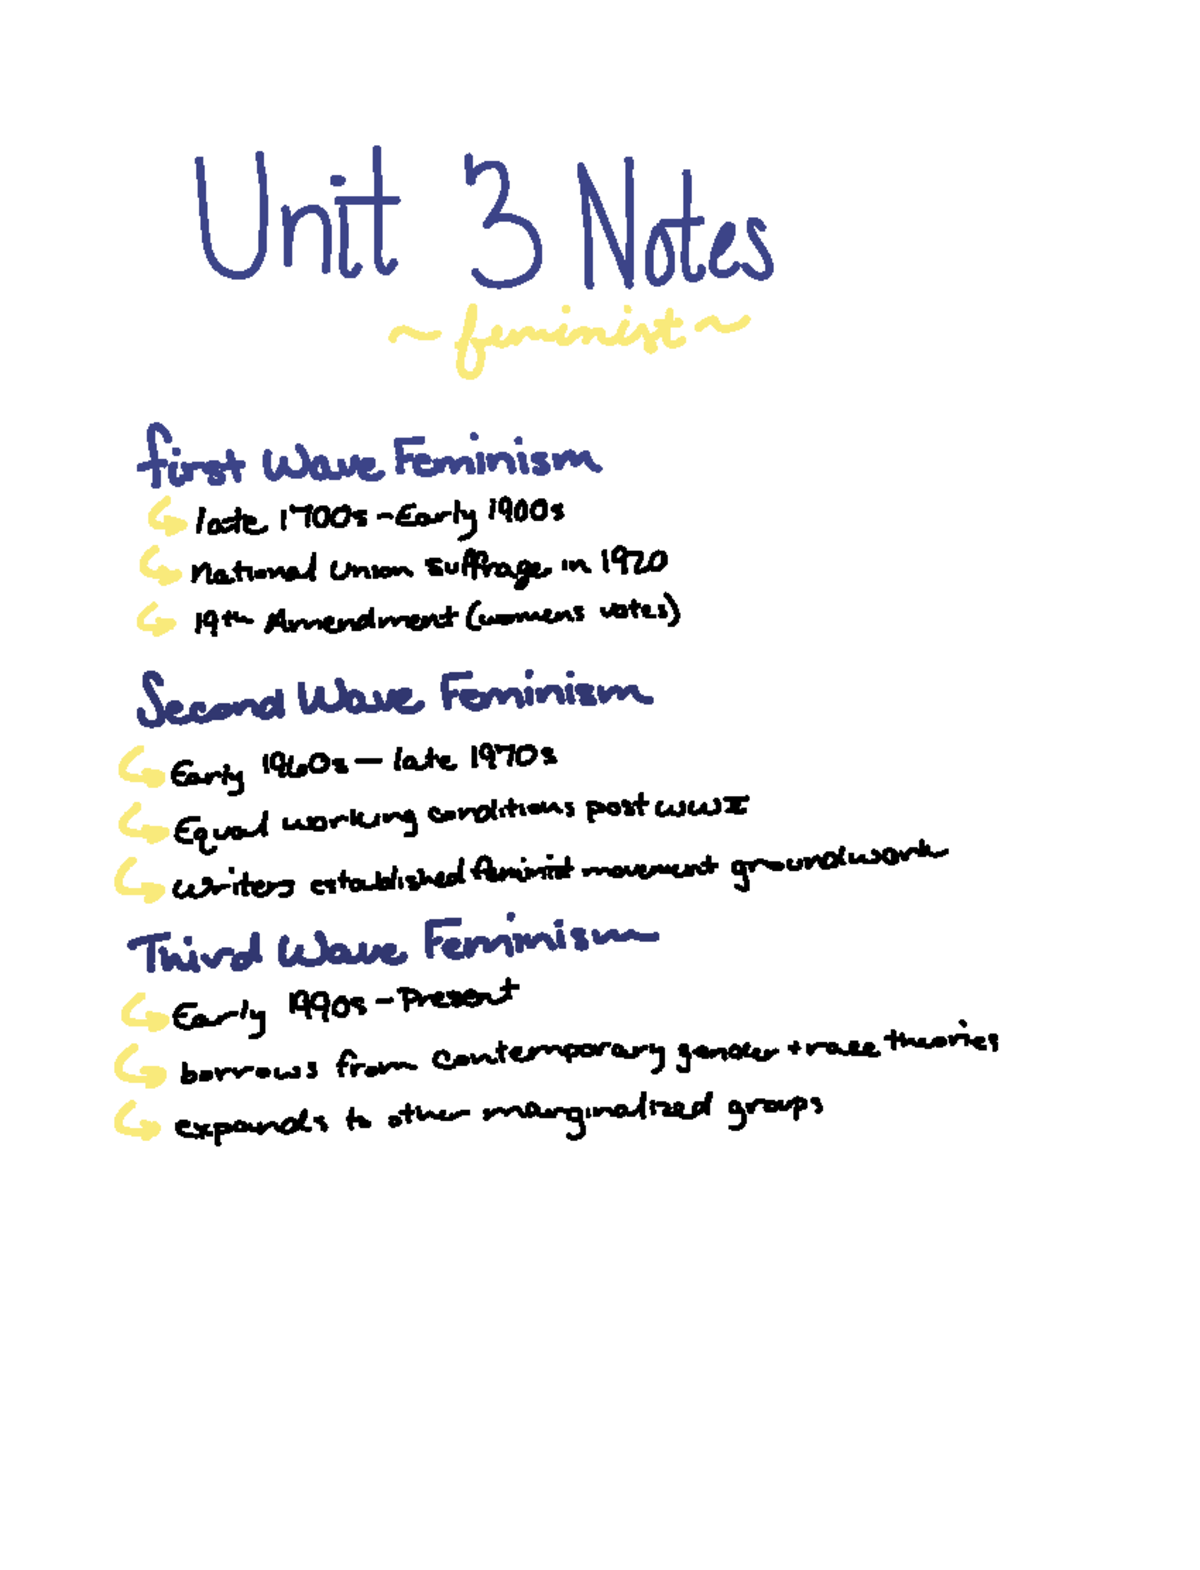 Unit 3 Notes
~feminist~
first Wave Feminism
late 1700s - Early 1900s
National Union suffrage in 1920
19th Amendment (womens votes)
Second Wave Feminism
Early 1960s — late 1970s
Equal working conditions post WWII
Writers established feminist movement groundwork
Third Wave Feminism
Early 1990s - Present
borrows from contemporary gender + race theories
expands to other marginalized groups